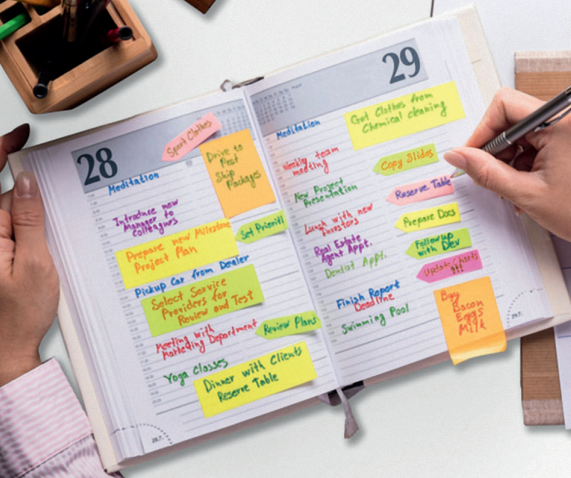 28
Sport Clothes
Meditation
Drive to
Post
Ship
Packages
Introduce new
Manager to
Colleagues
Set Prioriti
Prepare new Milestone
Project Plan
Pickup Car from Dealer
Select Service
Providers for
Review and Test
Meeting with
Marketing Department
Review Plans
Yoga Classes
Dinner with Clients
Reserve Table
29
Meditation
Got Clothes from
Chemical cleaning
Weekly team
meeting
Copy Slides
New Project
Presentation
Reserve Table
Lunch with new
Investors
Prepare Docs
Real Estate
Agent Appt.
Followup
with Dev
Dentist Appt.
Update Charts
Finish Report
Deadline
Buy
Bacon
Eggs
Milk
Swimming Pool